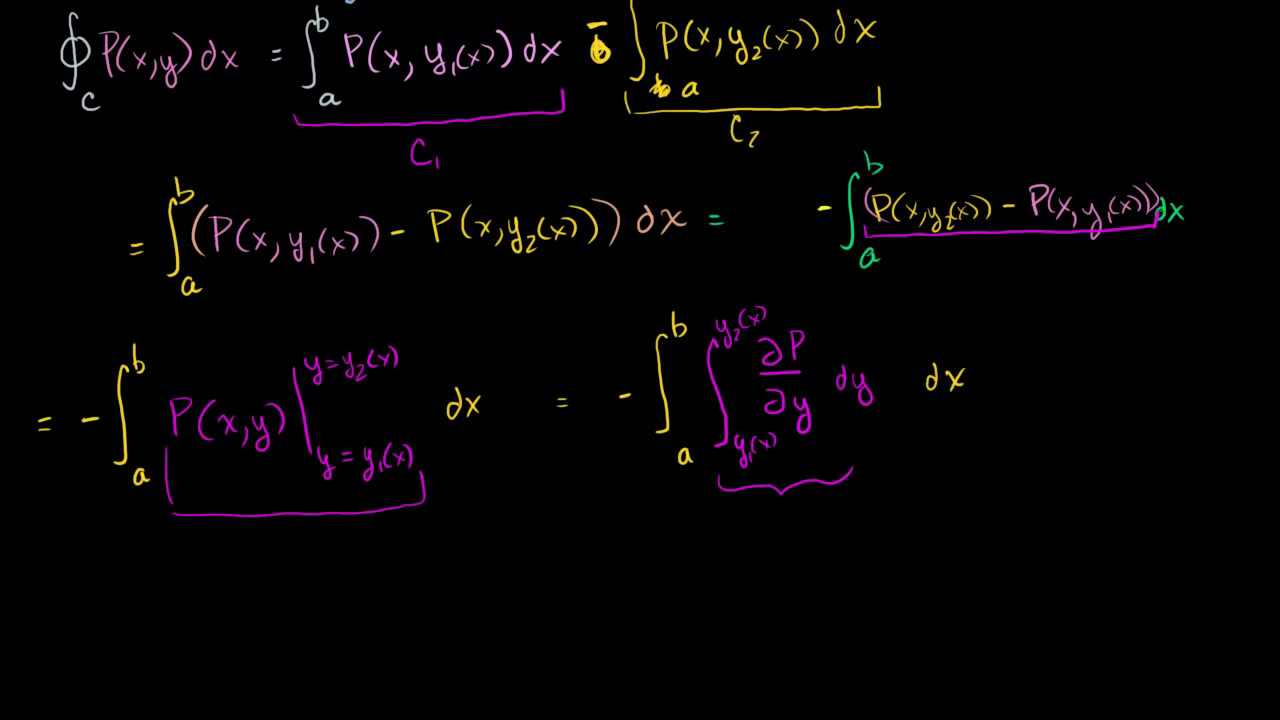 ∮_C P(x,y) dx = ∫_a^b P(x, y₁(x)) dx - ∫_a P(x, y₂(x)) dx
C₁ C₂
= ∫_a^b (P(x, y₁(x)) - P(x, y₂(x))) dx = - ∫_a^b (P(x, y₂(x)) - P(x, y₁(x))) dx
= - ∫_a^b P(x,y) |_{y = y₁(x)}^{y = y₂(x)} dx = - ∫_a^b ∫_{y₁(x)}^{y₂(x)} ∂P/∂y dy dx